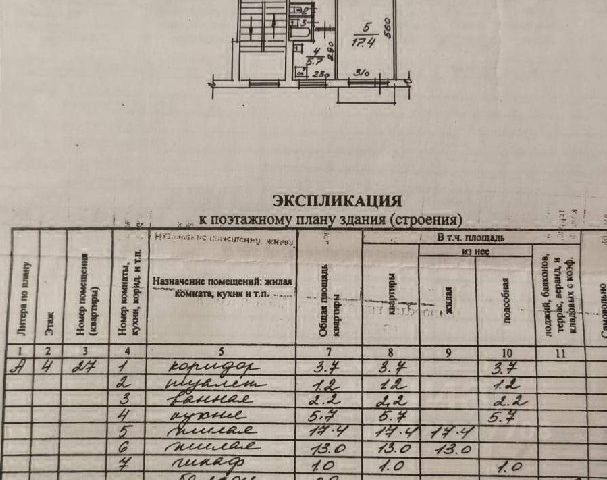 5
17.4
560
4
5.7
290
3
280
310
ЭКСПЛИКАЦИЯ
к поэтажному плану здания (строения)
Литера по плану
Этаж
Номер помещения (квартиры)
Номер комнаты, кухни, корид. и т.п.
Назначение помещений: жилая комната, кухни и т.п.
Общая площадь квартиры
В т.ч. площадь
из нее
квартиры
жилая
подсобная
лоджий, балконов, террас, веранд, и кладовых с коэф.
Самовольно
1 2 3 4 5 7 8 9 10 11
А 4 27 1 коридор 3.7 3.7 3.7
2 туалет 1.2 1.2 1.2
3 ванная 2.2 2.2 2.2
4 кухня 5.7 5.7 5.7
5 жилая 17.4 17.4 17.4
6 жилая 13.0 13.0 13.0
7 шкаф 1.0 1.0 1.0